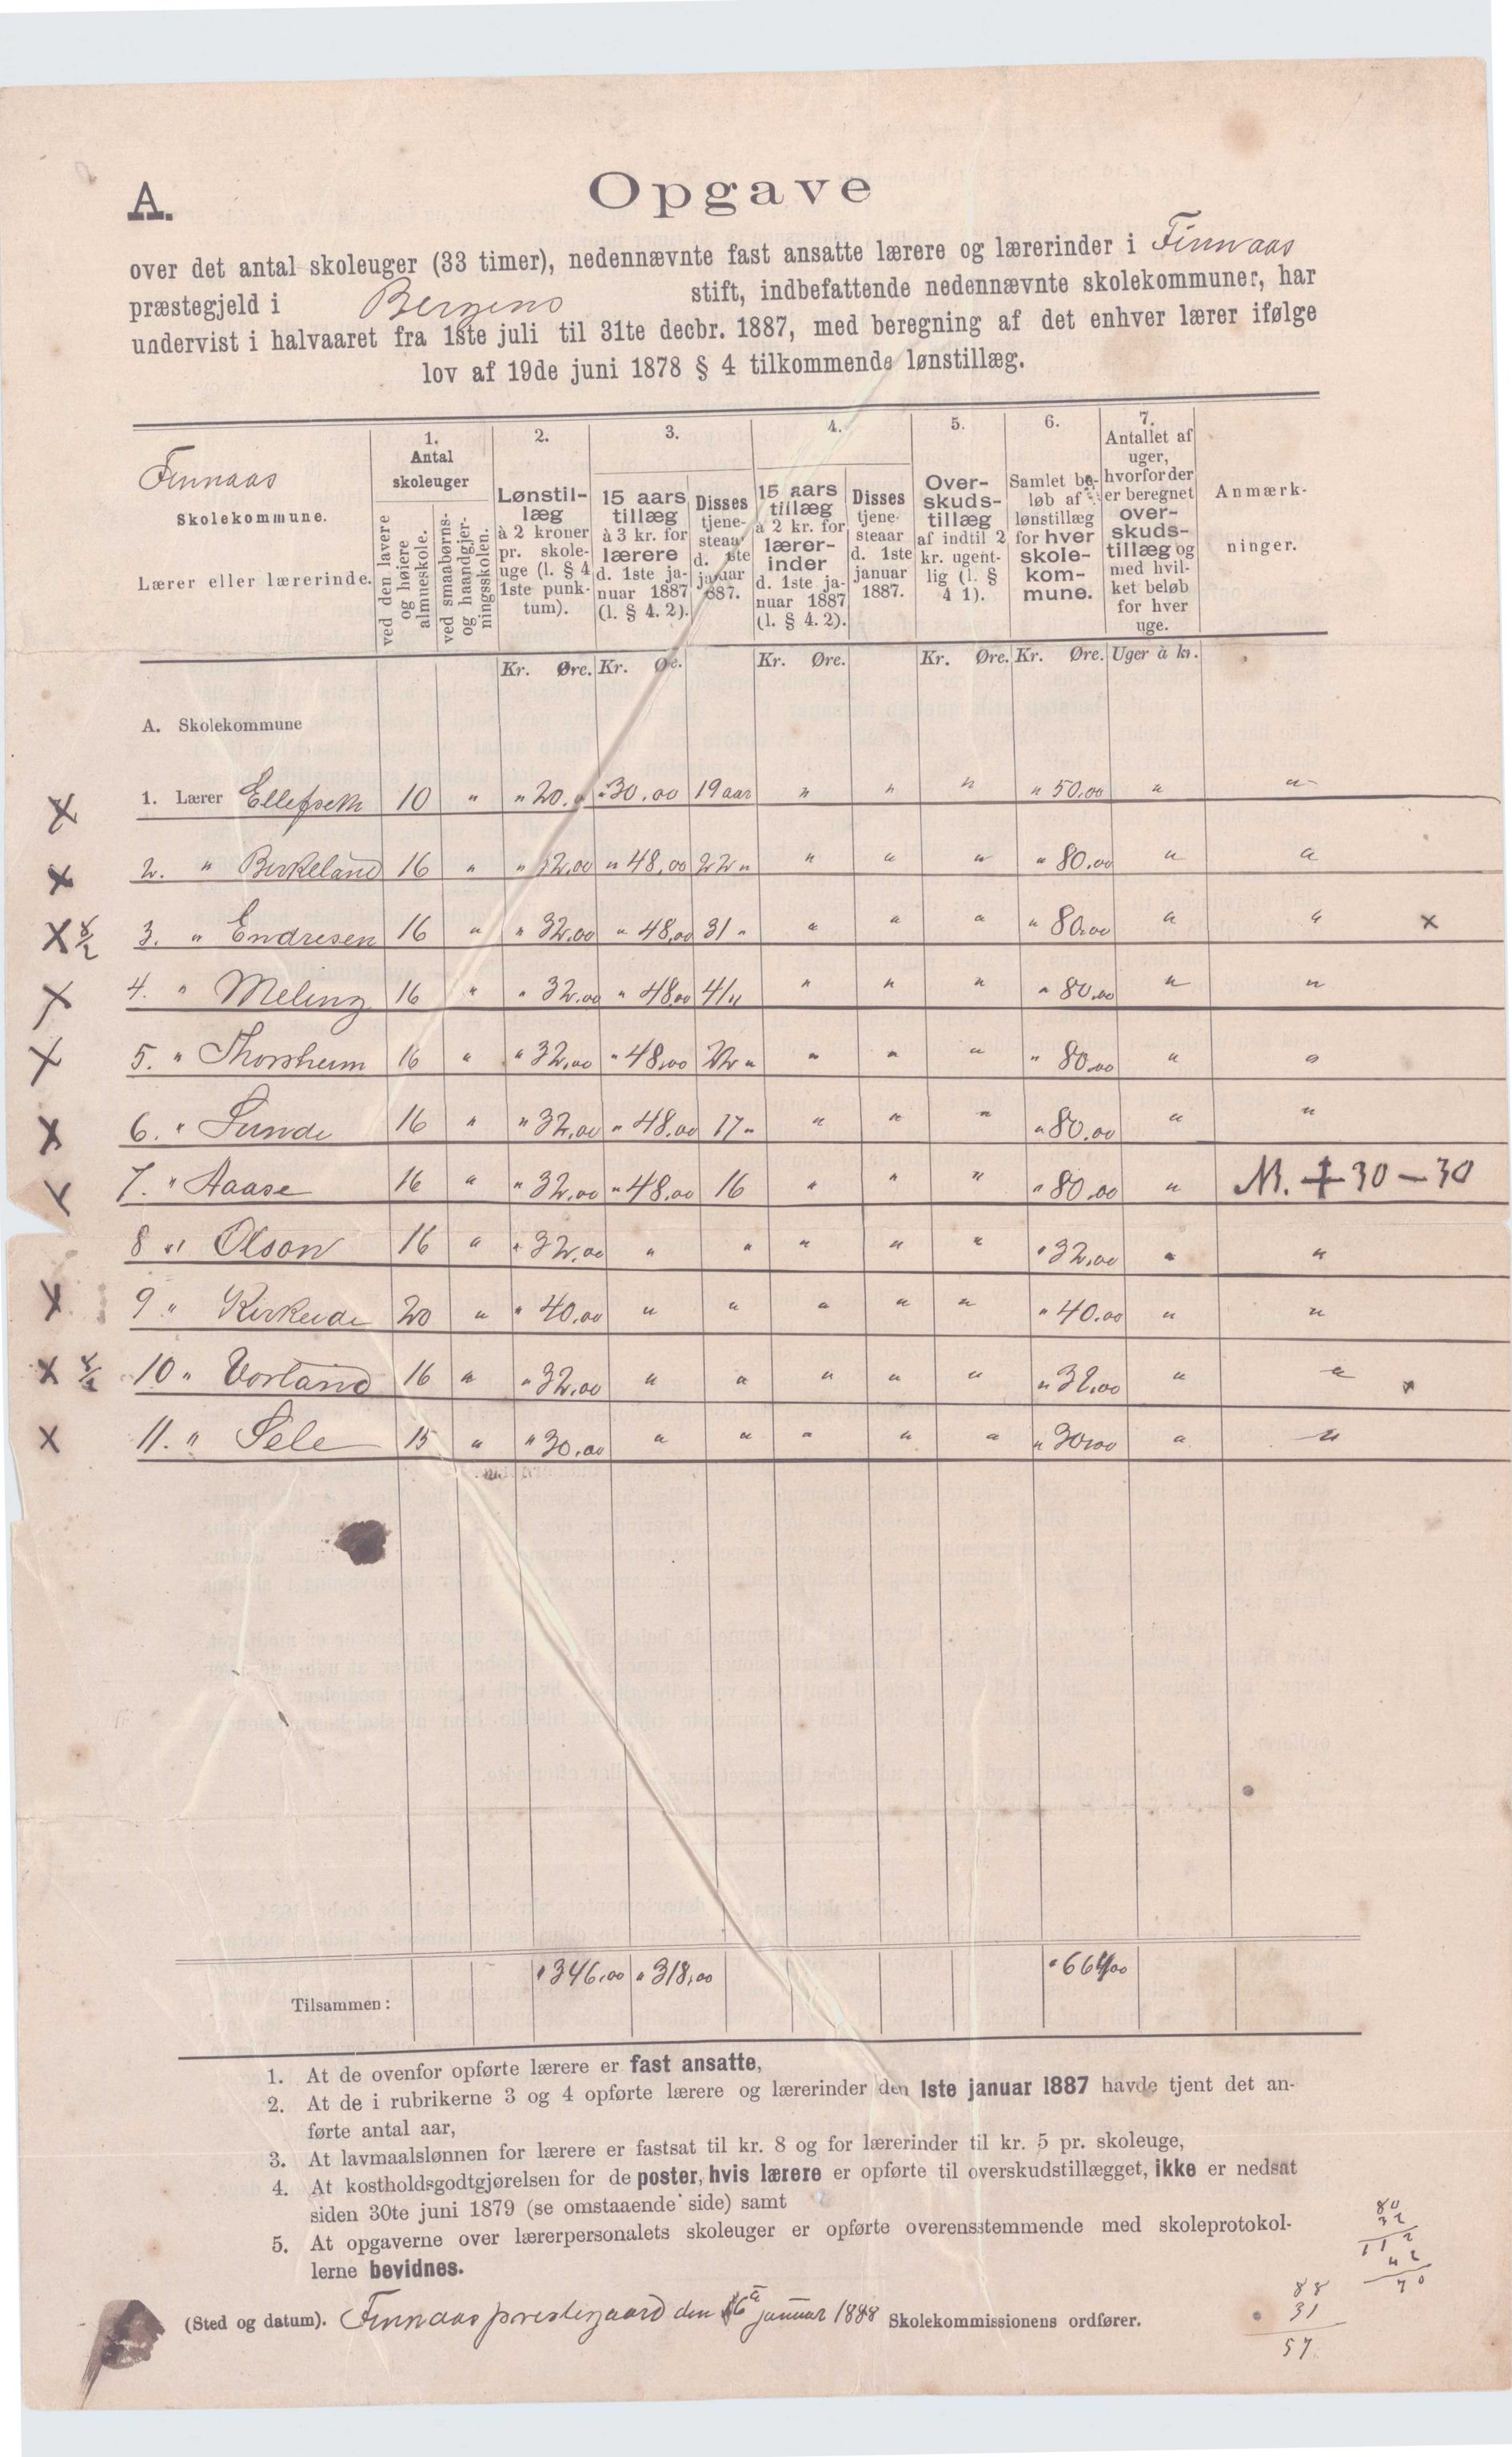 A.
Opgave
over det antal skoleuger (33 timer), nedennævnte fast ansatte lærere og lærerinder i Finnaas
præstegjeld i Bergens stift, indbefattende nedennævnte skolekommuner, har
undervist i halvaaret fra 1ste juli til 31te decbr. 1887, med beregning af det enhver lærer ifølge
lov af 19de juni 1878 § 4 tilkommende lønstillæg.
Finnaas
Skolekommune.
Lærer eller lærerinde.
1.
Antal
skoleuger
ved den lavere
og høiere
almueskole.
ved smaabørns-
og haandgjer-
ningsskolen.
2.
Lønstil-
læg
à 2 kroner
pr. skole-
uge (l. § 4
1ste punk-
tum).
3.
15 aars
tillæg
à 3 kr. for
lærere
d. 1ste ja-
nuar 1887
(l. § 4. 2).
Disses
tjene-
steaar
d. 1ste
januar
1887.
4.
15 aars
tillæg
à 2 kr. for
lærer-
inder
d. 1ste ja-
nuar 1887
(l. § 4. 2).
Disses
tjene-
steaar
d. 1ste
januar
1887.
5.
Over-
skuds-
tillæg
af indtil 2
kr. ugent-
lig (l. §
4 1).
6.
Samlet be-
løb af
lønstillæg
for hver
skole-
kom-
mune.
7.
Antallet af
uger,
hvorfor der
er beregnet
over-
skuds-
tillæg og
med hvil-
ket beløb
for hver
uge.
Anmærk-
ninger.
Kr. Øre. Kr. Øre. Kr. Øre. Kr. Øre. Kr. Øre. Uger à kr.
A. Skolekommune
x 1. Lærer Ellefseth 10 " " 20. " " 30.00 19 aar " " " " 50.00 " "
x 2. " Birkeland 16 " " 32,00 " 48,00 22 " " " " " 80.00 " "
x 8/2 3. " Endresen 16 " " 32,00 " 48,00 31 " " " " " 80.00 " " x
x 4. " Meling 16 " " 32,00 " 48,00 41 " " " " " 80,00 " "
x 5. " Thorsheim 16 " " 32,00 " 48,00 22 " " " " " 80.00 " "
x 6. " Sunde 16 " " 32,00 " 48,00 17 " " " " " 80.00 " "
x 7. " Aaase 16 " " 32,00 " 48,00 16 " " " " 80.00 " N. + 30 - 30
8 " Olson 16 " " 32,00 " " " " " " 32,00 " "
x 9 " Kirkeide 20 " " 40,00 " " " " " " 40.00 " "
x 8/2 10 " Vorland 16 " " 32,00 " " " " " " 32,00 " " x
x 11. " Sele 15 " " 30,00 " " " " " " 30,00 " "
Tilsammen: " 346,00 " 318,00 " 664,00
1. At de ovenfor opførte lærere er fast ansatte,
2. At de i rubrikerne 3 og 4 opførte lærere og lærerinder den 1ste januar 1887 havde tjent det an-
førte antal aar,
3. At lavmaalslønnen for lærere er fastsat til kr. 8 og for lærerinder til kr. 5 pr. skoleuge,
4. At kostholdsgodtgjørelsen for de poster, hvis lærere er opførte til overskudstillægget, ikke er nedsat
siden 30te juni 1879 (se omstaaende side) samt
5. At opgaverne over lærerpersonalets skoleuger er opførte overensstemmende med skoleprotokol-
lerne bevidnes.
80
32
112
42
70
88
31
57
(Sted og datum). Finnaas prestegaard den 16de januar 1888 Skolekommissionens ordfører.